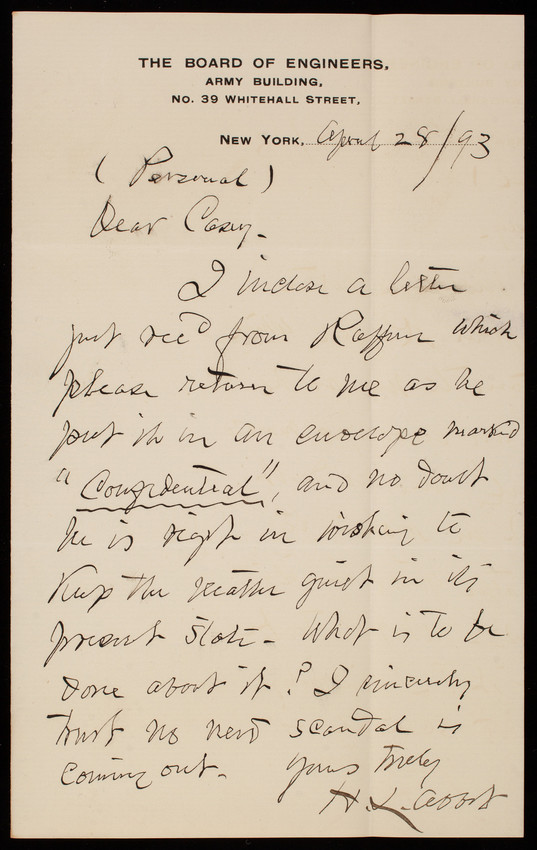 THE BOARD OF ENGINEERS,
ARMY BUILDING,
No. 39 WHITEHALL STREET,
NEW YORK, April 28/93
(Personal)
Dear Casey-
I inclose a letter
just rec'd from Raffun which
please return to me as he
put it in an envelope marked
"Confidential", and no doubt
he is right in wishing to
keep the matter quiet in its
present state- What is to be
done about it? I sincerely
trust no new scandal is
coming out- Yours truly
H. L. Abbot